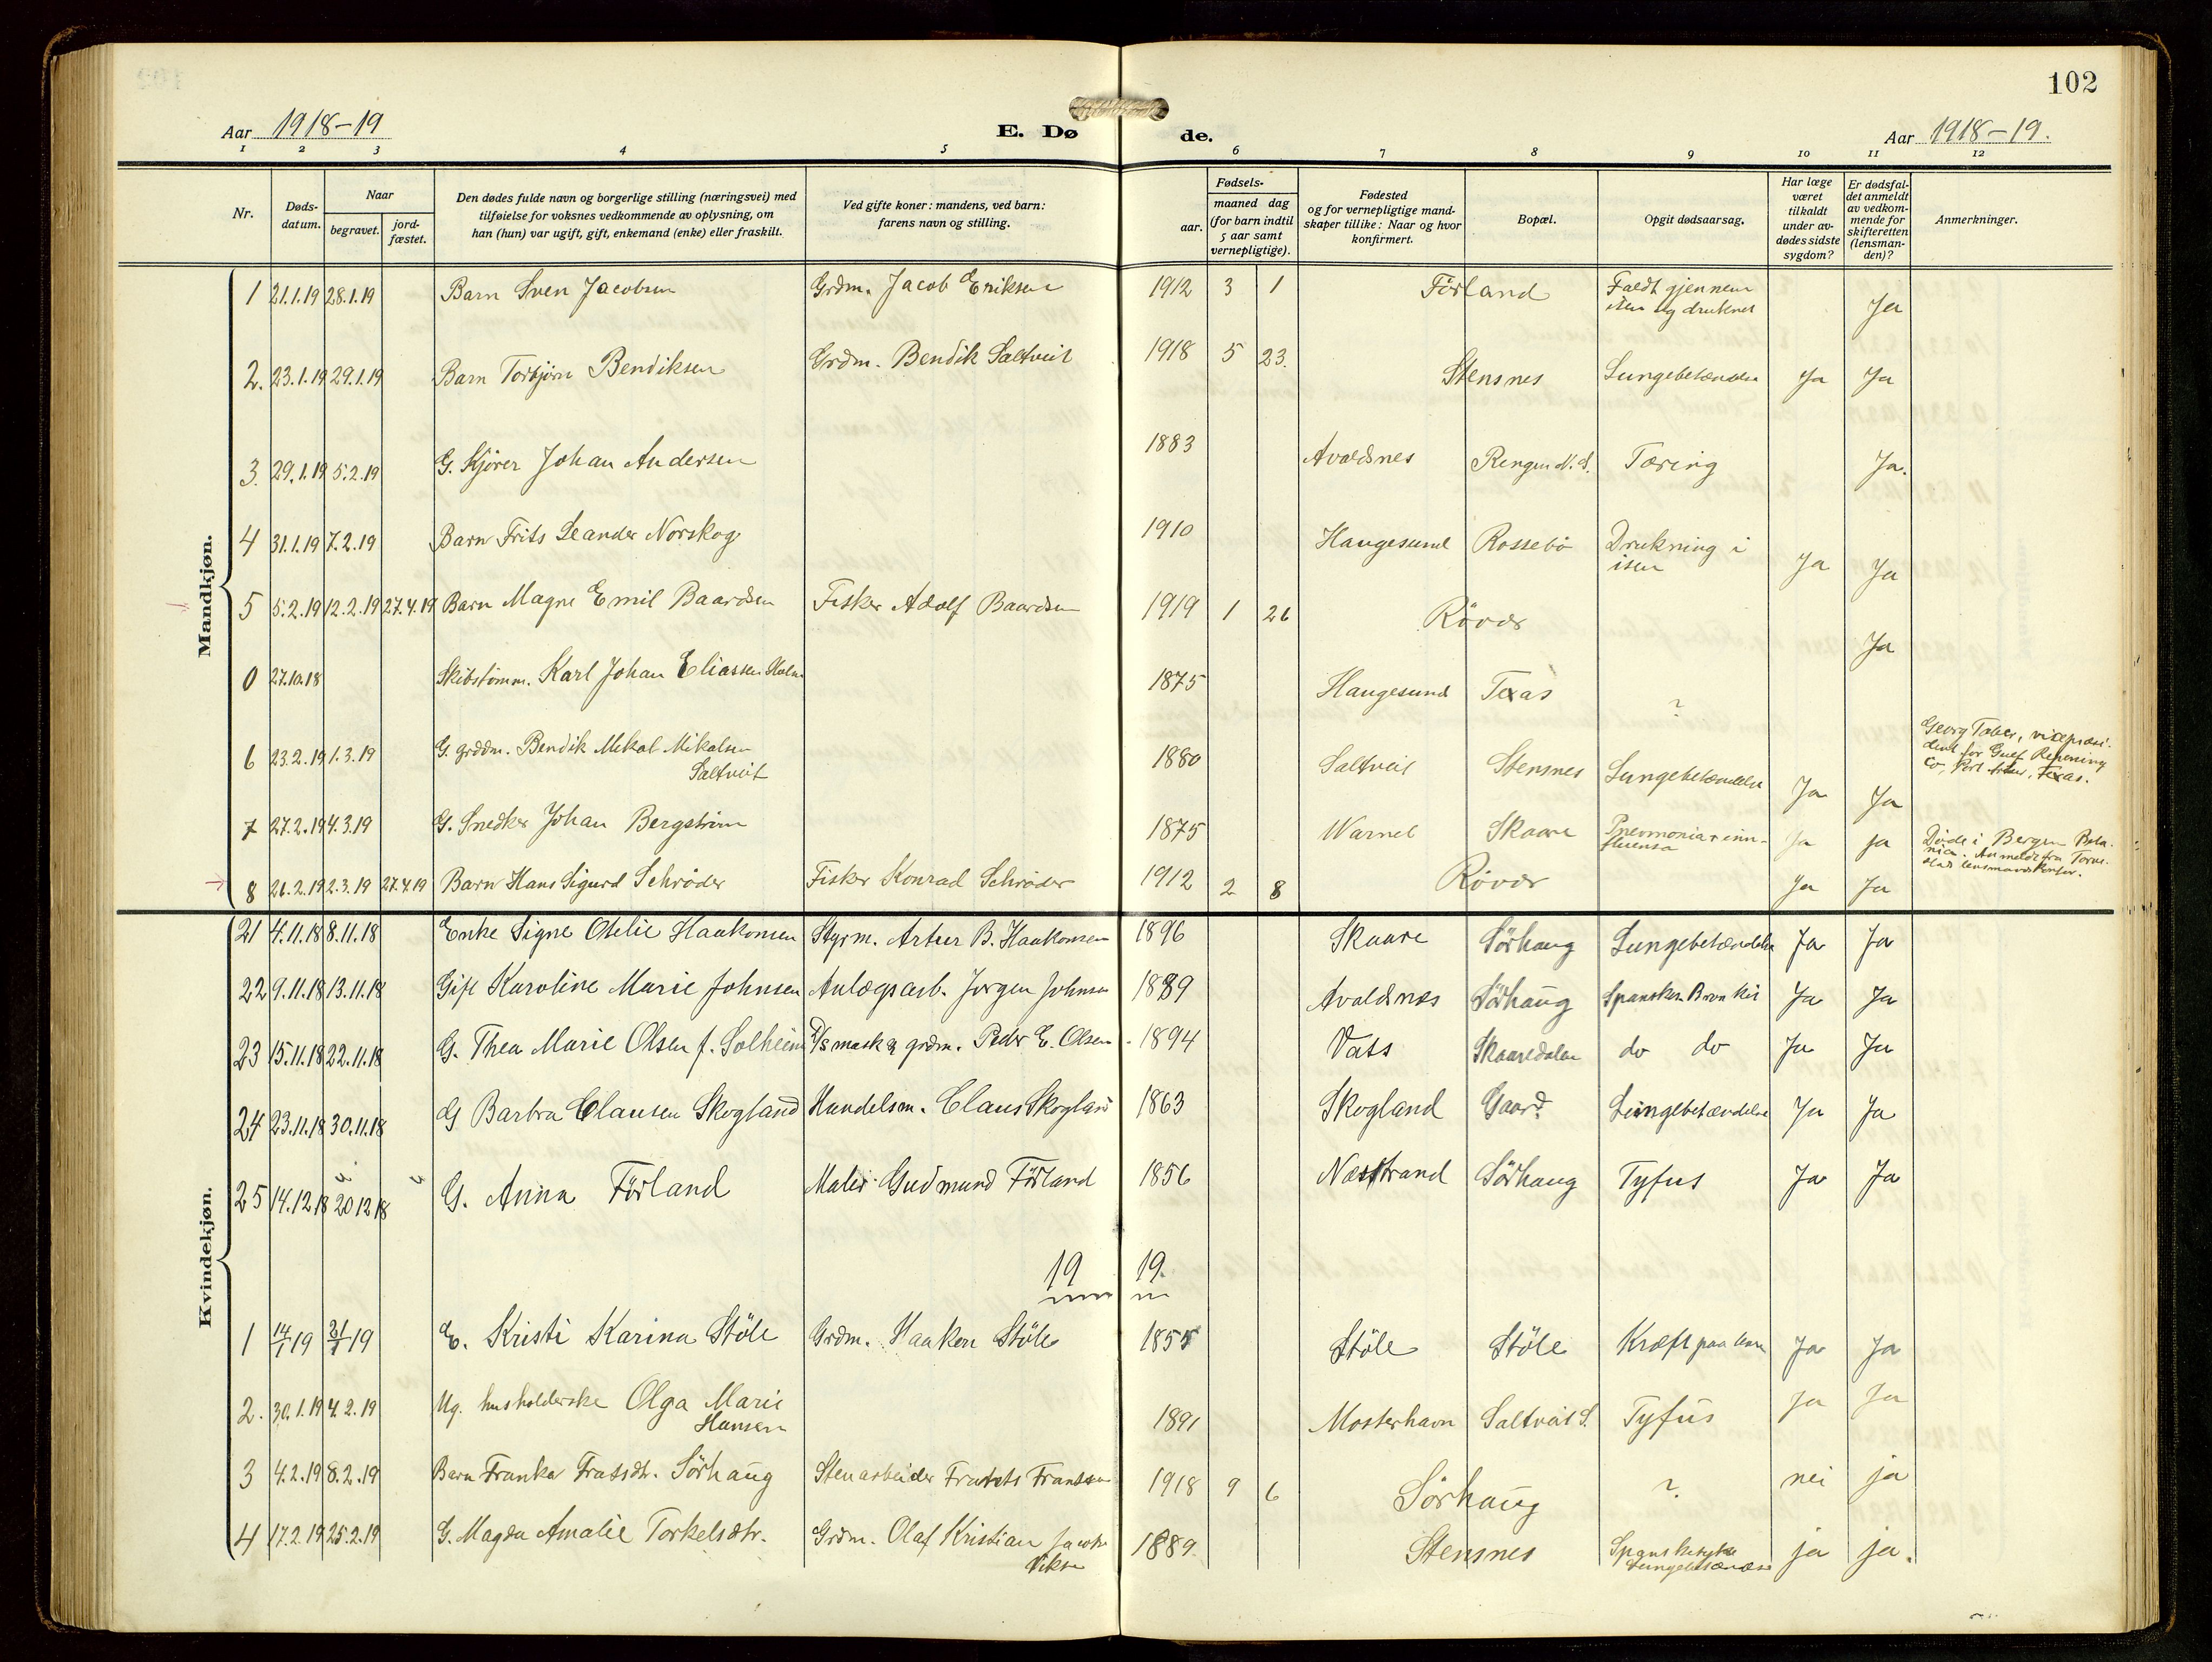 102
Aar 1918-19
E. Døde.
Aar 1918-19.
1 2 3 4 5 6 7 8 9 10 11 12
Nr.
Døds-
datum.
Naar
begravet.
jord-
fæstet.
Den dødes fulde navn og borgerlige stilling (næringsvei) med
tilføielse for voksnes vedkommende av oplysning, om
han (hun) var ugift, gift, enkemand (enke) eller fraskilt.
Ved gifte koner: mandens, ved barn:
farens navn og stilling.
Fødsels-
aar.
maaned dag
(for barn indtil
5 aar samt
vernepligtige).
Fødested
og for vernepligtige mand-
skaper tillike: Naar og hvor
konfirmert.
Bopæl.
Opgit dødsaarsag.
Har læge
været
tilkaldt
under av-
dødes sidste
sygdom?
Er dødsfal-
det anmeldt
av vedkom-
mende for
skifteretten
(lensman-
den)?
Anmerkninger.
Mandkjøn.
1 21.1.19 28.1.19 Barn Sven Jacobsen Grdm. Jacob Eriksen 1912 3 1 Förland Faldt gjennem
isen og druknet Ja
2. 23.1.19 29.1.19 Barn Torbjørn Bendiksen Grdm. Bendik Saltveit 1918 5 23. Stensnes Lungebetændelse Ja Ja
3. 29.1.19 5.2.19 G. Kjører Johan Andersen 1883 Avaldsnes Rengen N.S. Tæring Ja.
4 31.1.19 7.2.19 Barn Frits Leander Norskog 1910 Haugesund Rossebö Drukning i
isen Ja Ja
5 5.2.19 12.2.19 27.4.19 Barn Magne Emil Baardsen Fisker Adolf Baardsen 1919 1 26 Rövær Ja
0 27.10.18 Skibstömm. Karl Johan Eliassen Holm 1875 Haugesund Texas ?
Georg Taber, vicepræsi-
dent for Gulf Refening
Co, Port Artur, Texas.
6 23.2.19 1.3.19 G. grdm. Bendik Mikal Mikalsen
Saltveit 1880 Saltveit Stensnes Lungebetændelse Ja Ja
7 27.2.19 4.3.19 G. Snedker Johan Bergström 1875 Warnel Skaare Pnevmonia + inn-
fluensa Ja ja
Døde i Bergen Bota-
nica. Anmeldt fra Torve-
stad lensmandskontor.
8 26.2.19 2.3.19 27.4.19 Barn Hans Sigurd Schrøder Fisker Konrad Schrøder 1912 2 8 Rövær Ja Ja
Kvindekjøn.
21 4.11.18 8.11.18 Enke Signe Otelie Haakonsen Styrm. Artur B. Haakonsen 1896 Skaare Sörhaug Lungebetændelse Ja Ja
22 9.11.18 13.11.18 Gift Karoline Marie Johnsen Anlægsarb. Jørgen Johnsen 1889 Avaldsnes Sörhaug Spanske Bronkit Ja Ja
23 15.11.18 22.11.18 G. Thea Marie Olsen f. Solheim D/S mask & grdm. Peder E. Olsen 1894 Vats Skaaredalen do do Ja Ja
24 23.11.18 30.11.18 G Barbra Clausen Skogland Handelsm. Claus Skogland 1863 Skogland Gaard Lungebetændelse Ja Ja
25 14.12.18 20.12.18 G. Anna Förland Maler Gudmund Förland 1856 Næstrand Sörhaug Tyfus Ja Ja
19 19.
1 14/1 19 21/1 19 E. Kristi Karina Stöle Grdm. Haakon Stöle 1855 Stöle Stöle Kræft paa Ja Ja
2. 30.1.19 4.2.19 Ug. husholderske Olga Marie
Hansen 1891 Mosterhavn Saltveit S. Tyfus Ja Ja
3 4.2.19 8.2.19 Barn Franka Fratsdtr. Sörhaug Stenarbeider Frants Frantsen 1918 9 6 Sörhaug ? nei ja
4 17.2.19 25.2.19 G. Magda Amalie Torkelsdtr. Grdm. Olaf Kristian
Vikse 1889. Stensnes Spanskesyke
Lungebetændelse ja ja.